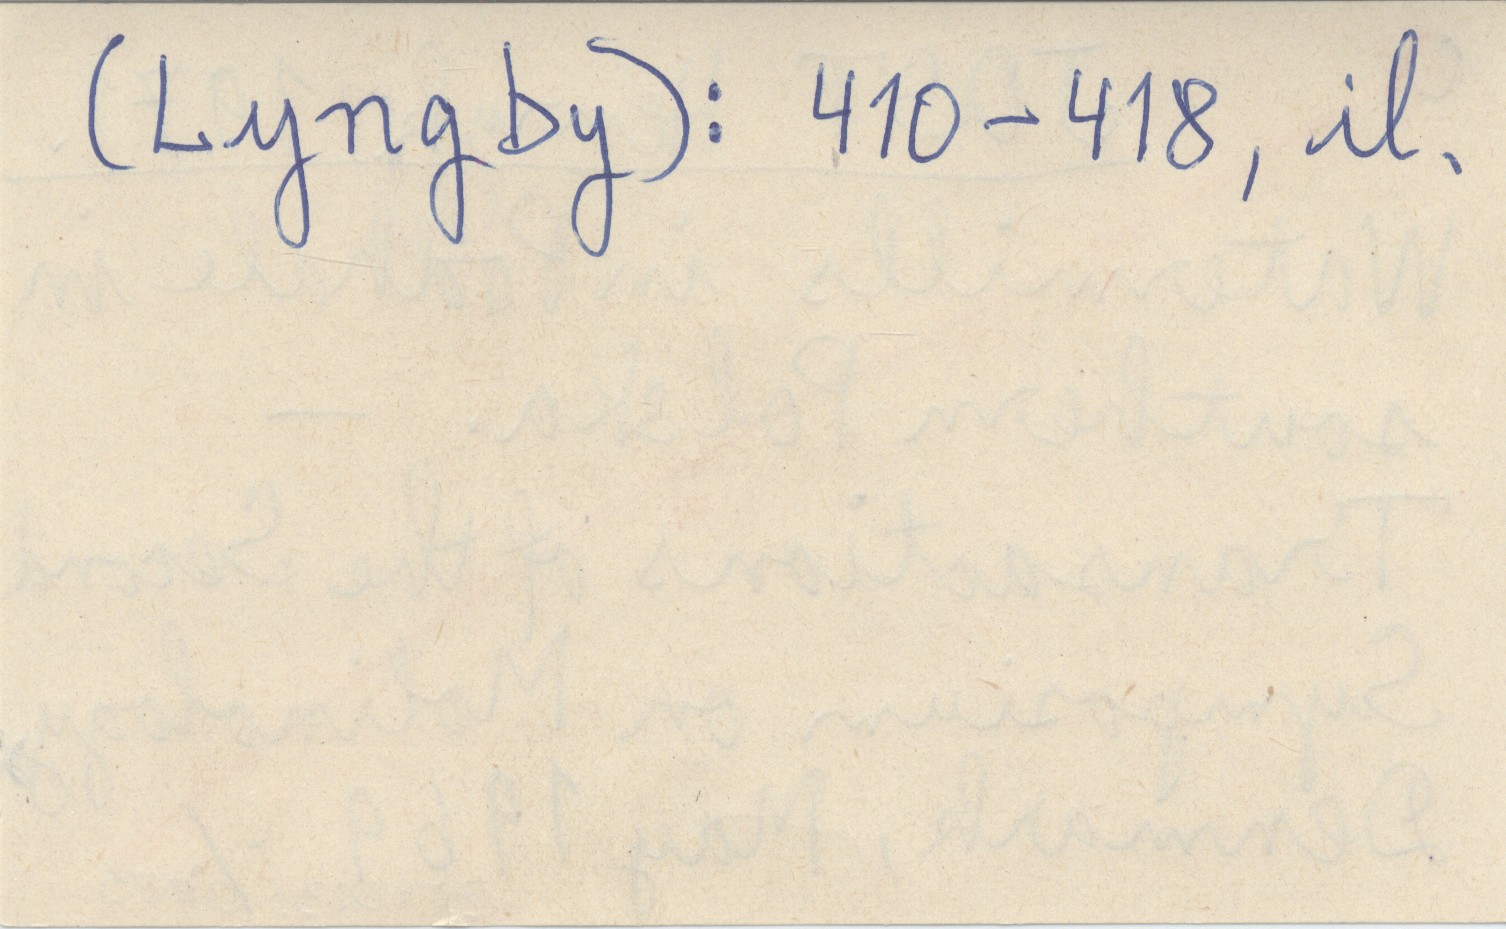 (Lyngby): 410-418, il.